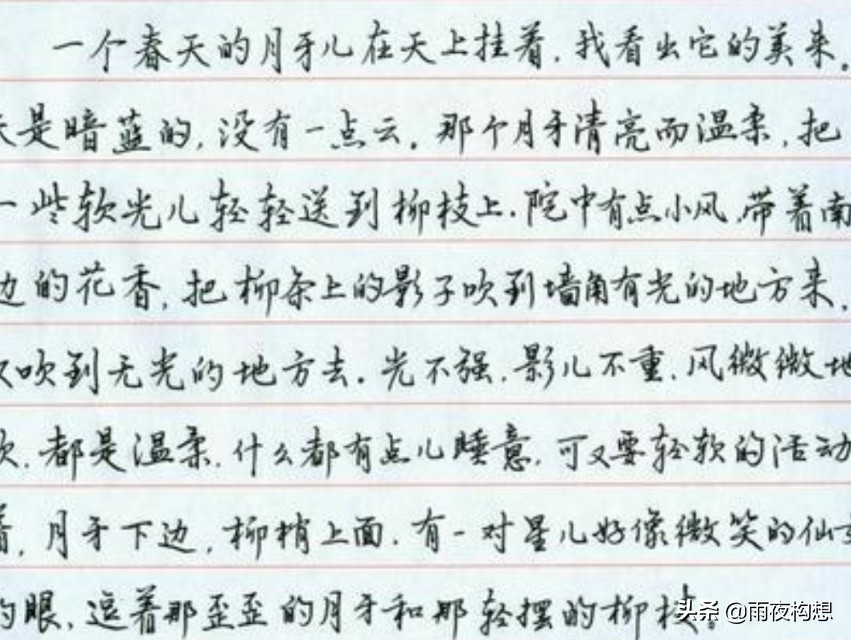 一个春天的月牙儿在天上挂着,我看出它的美来。
天是暗蓝的,没有一点云。那个月牙清亮而温柔,把
一些软光儿轻轻送到柳枝上。院中有点小风,带着南
边的花香,把柳条上的影子吹到墙角有光的地方来,
又吹到无光的地方去。光不强,影儿不重,风微微地
吹,都是温柔,什么都有点儿睡意,可又要轻软的活动
着,月牙下边,柳梢上面,有一对星儿好像微笑的仙女
的眼,逗着那歪歪的月牙和那轻摆的柳枝。
头条 @雨夜构想